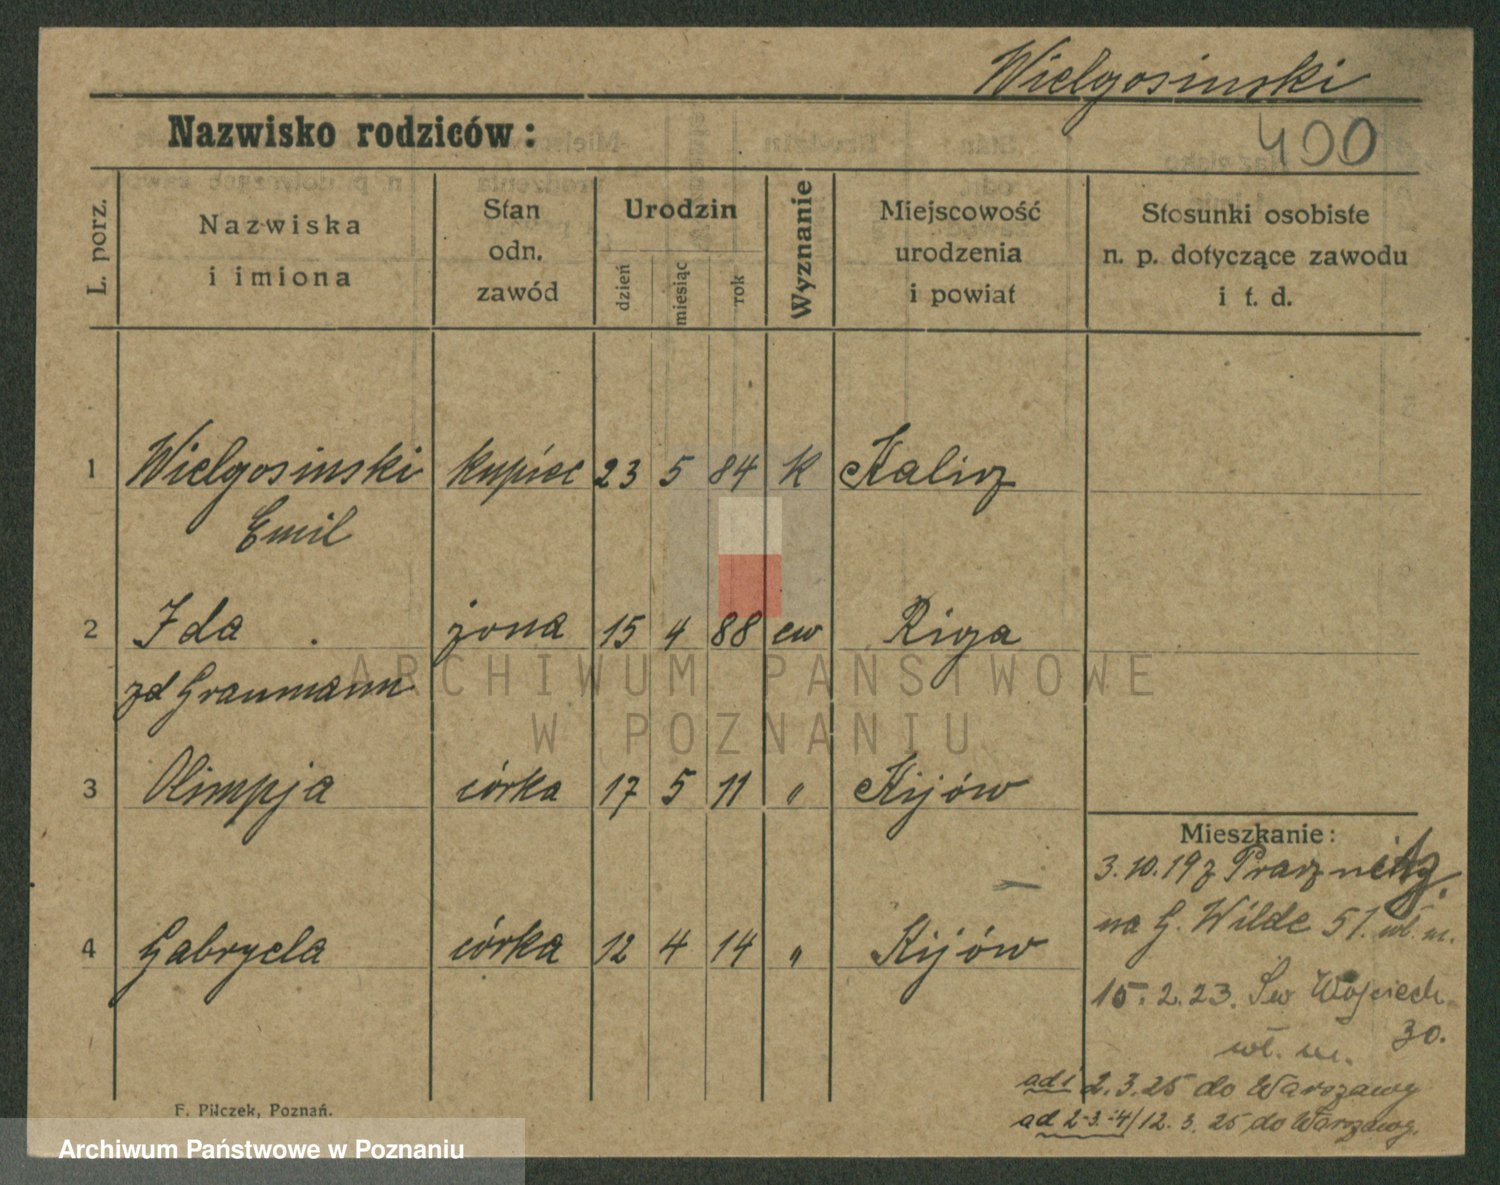 Wielgosinski
400
Nazwisko rodziców:
L. porz.
Nazwiska
i imiona
Stan
odn.
zawód
Urodzin
dzień
miesiąc
rok
Wyznanie
Miejscowość
urodzenia
i powiat
Stosunki osobiste
n. p. dotyczące zawodu
i t. d.
1 Wielgosinski kupiec 23 5 84 K Kalisz
Emil
2 Ida żona 15 4 88 ew Riga
zd Graumann
3 Olimpja córka 17 5 11 " Kijów
4 Gabryela córka 12 4 14 " Kijów
Mieszkanie:
3.10.19 z
na G. Wilde 51. wł. m.
15.2.23. Św Wojciech
30.
wł. m.
ad 1 2.3.25 do Warszawy
ad 2-3-4/12.3.25 do Warszawy.
F. Pilczek, Poznań.
ARCHIWUM PAŃSTWOWE
W POZNANIU
Archiwum Państwowe w Poznaniu